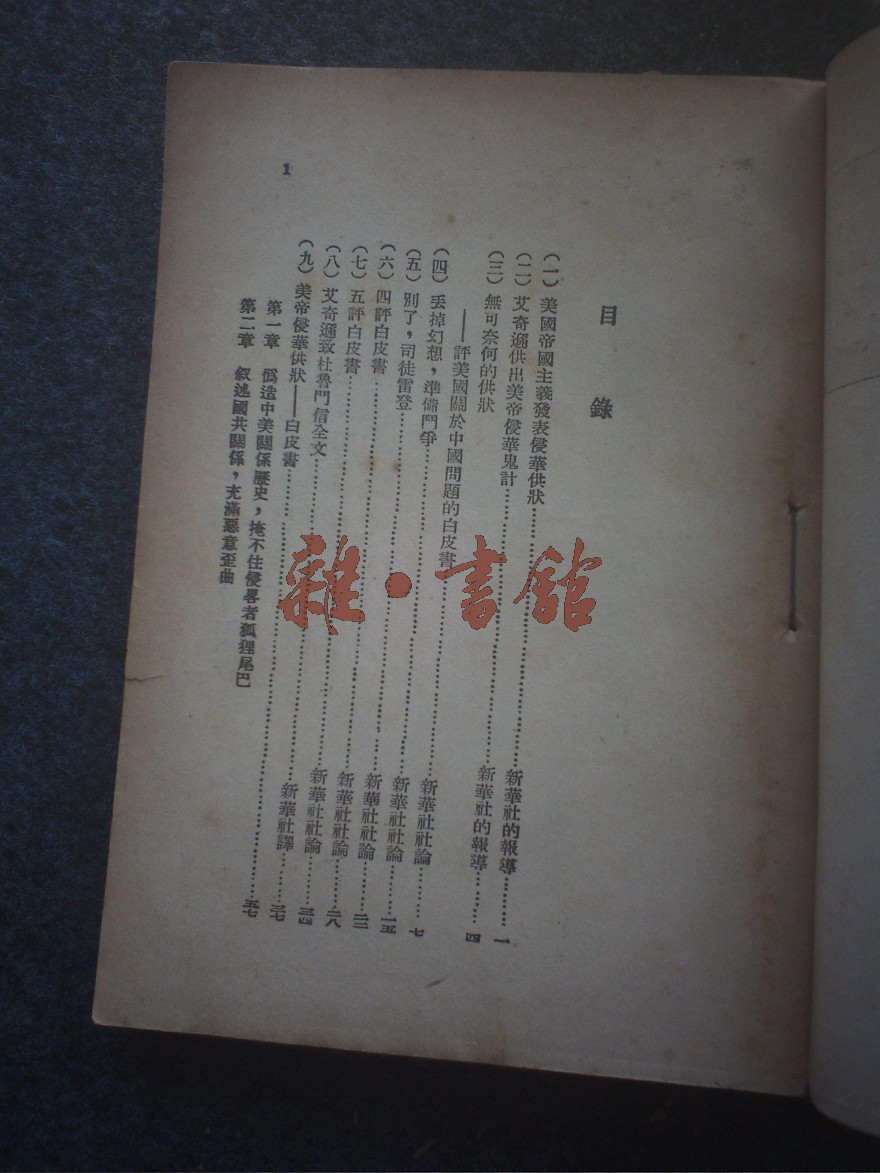 目錄
（一）美國帝國主義發表侵華供狀……新華社的報導……一
（二）艾奇遜供出美帝侵華鬼計……新華社的報導……四
（三）無可奈何的供狀
——評美國關於中國問題的白皮書……新華社社論……七
（四）丟掉幻想，準備鬥爭……新華社社論……一五
（五）別了，司徒雷登……新華社社論……二二
（六）四評白皮書……新華社社論……二八
（七）五評白皮書……新華社社論……三四
（八）艾奇遜致杜魯門信全文……新華社譯……三七
（九）美帝侵華供狀——白皮書……五七
第一章　僞造中美關係歷史，掩不住侵畧者狐狸尾巴
第二章　叙述國共關係，充滿惡意歪曲
1
雜·書館